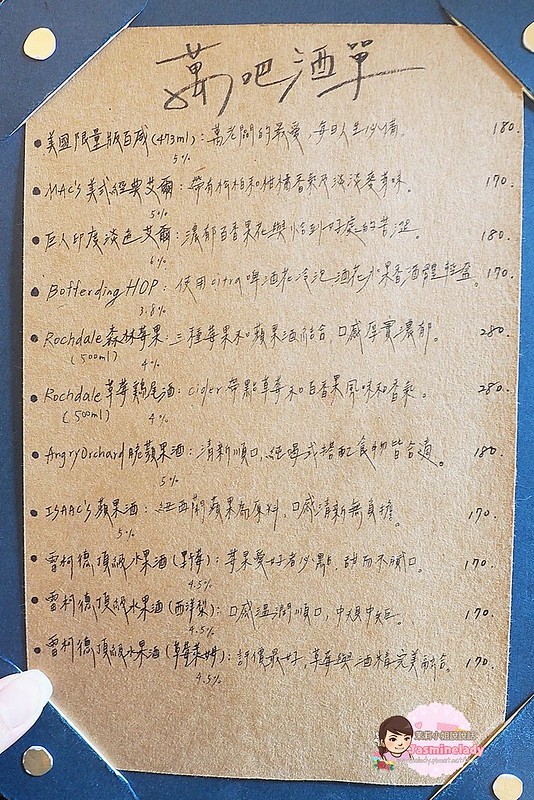 萬吧酒單
•美國限量版百威(473ml):萬老闆的最愛,每日人生必備. 180.
5%
•MAC's美式經典艾爾:帶有松柏和柑橘香氣及淡淡麥芽味。 170.
5%
•巨人印度淡色艾爾:濃郁百香果花與恰到好處的苦澀。 180.
6%
•Bofferding HOP:使用citra啤酒花冷泡,酒花水果香酒體輕盈。 170.
3.8%
•Rochdale森林莓果:三種莓果和蘋果酒結合,口感厚實濃郁。 280.
(500ml) 4%
•Rochdale草莓雞尾酒:cider帶點草莓和百香果風味和香氣。 280.
(500ml) 4%
•Angry Orchard脆蘋果酒:清新順口,純喝或搭配食物皆合適。 180.
5%
•ISAAC's蘋果酒:紐西蘭蘋果為原料,口感清新無負擔。 170.
5%
•雷柯德頂級水果酒(野莓):莓果愛好者必點,甜而不膩口。 170.
4.5%
•雷柯德頂級水果酒(西洋梨):口感溫潤順口,中規中矩。 170.
4.5%
•雷柯德頂級水果酒(草莓萊姆):評價最好,草莓與酒精完美融合。 170.
4.5%
茉莉小姐說說話
Jasminelady